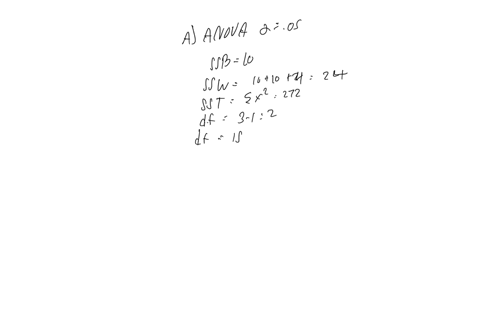 A) ANOVA α = .05
SSB = 10
SSW = 10 + 10 + 4 = 24
SST = Σx² = 272
df = 3-1 = 2
df = 15